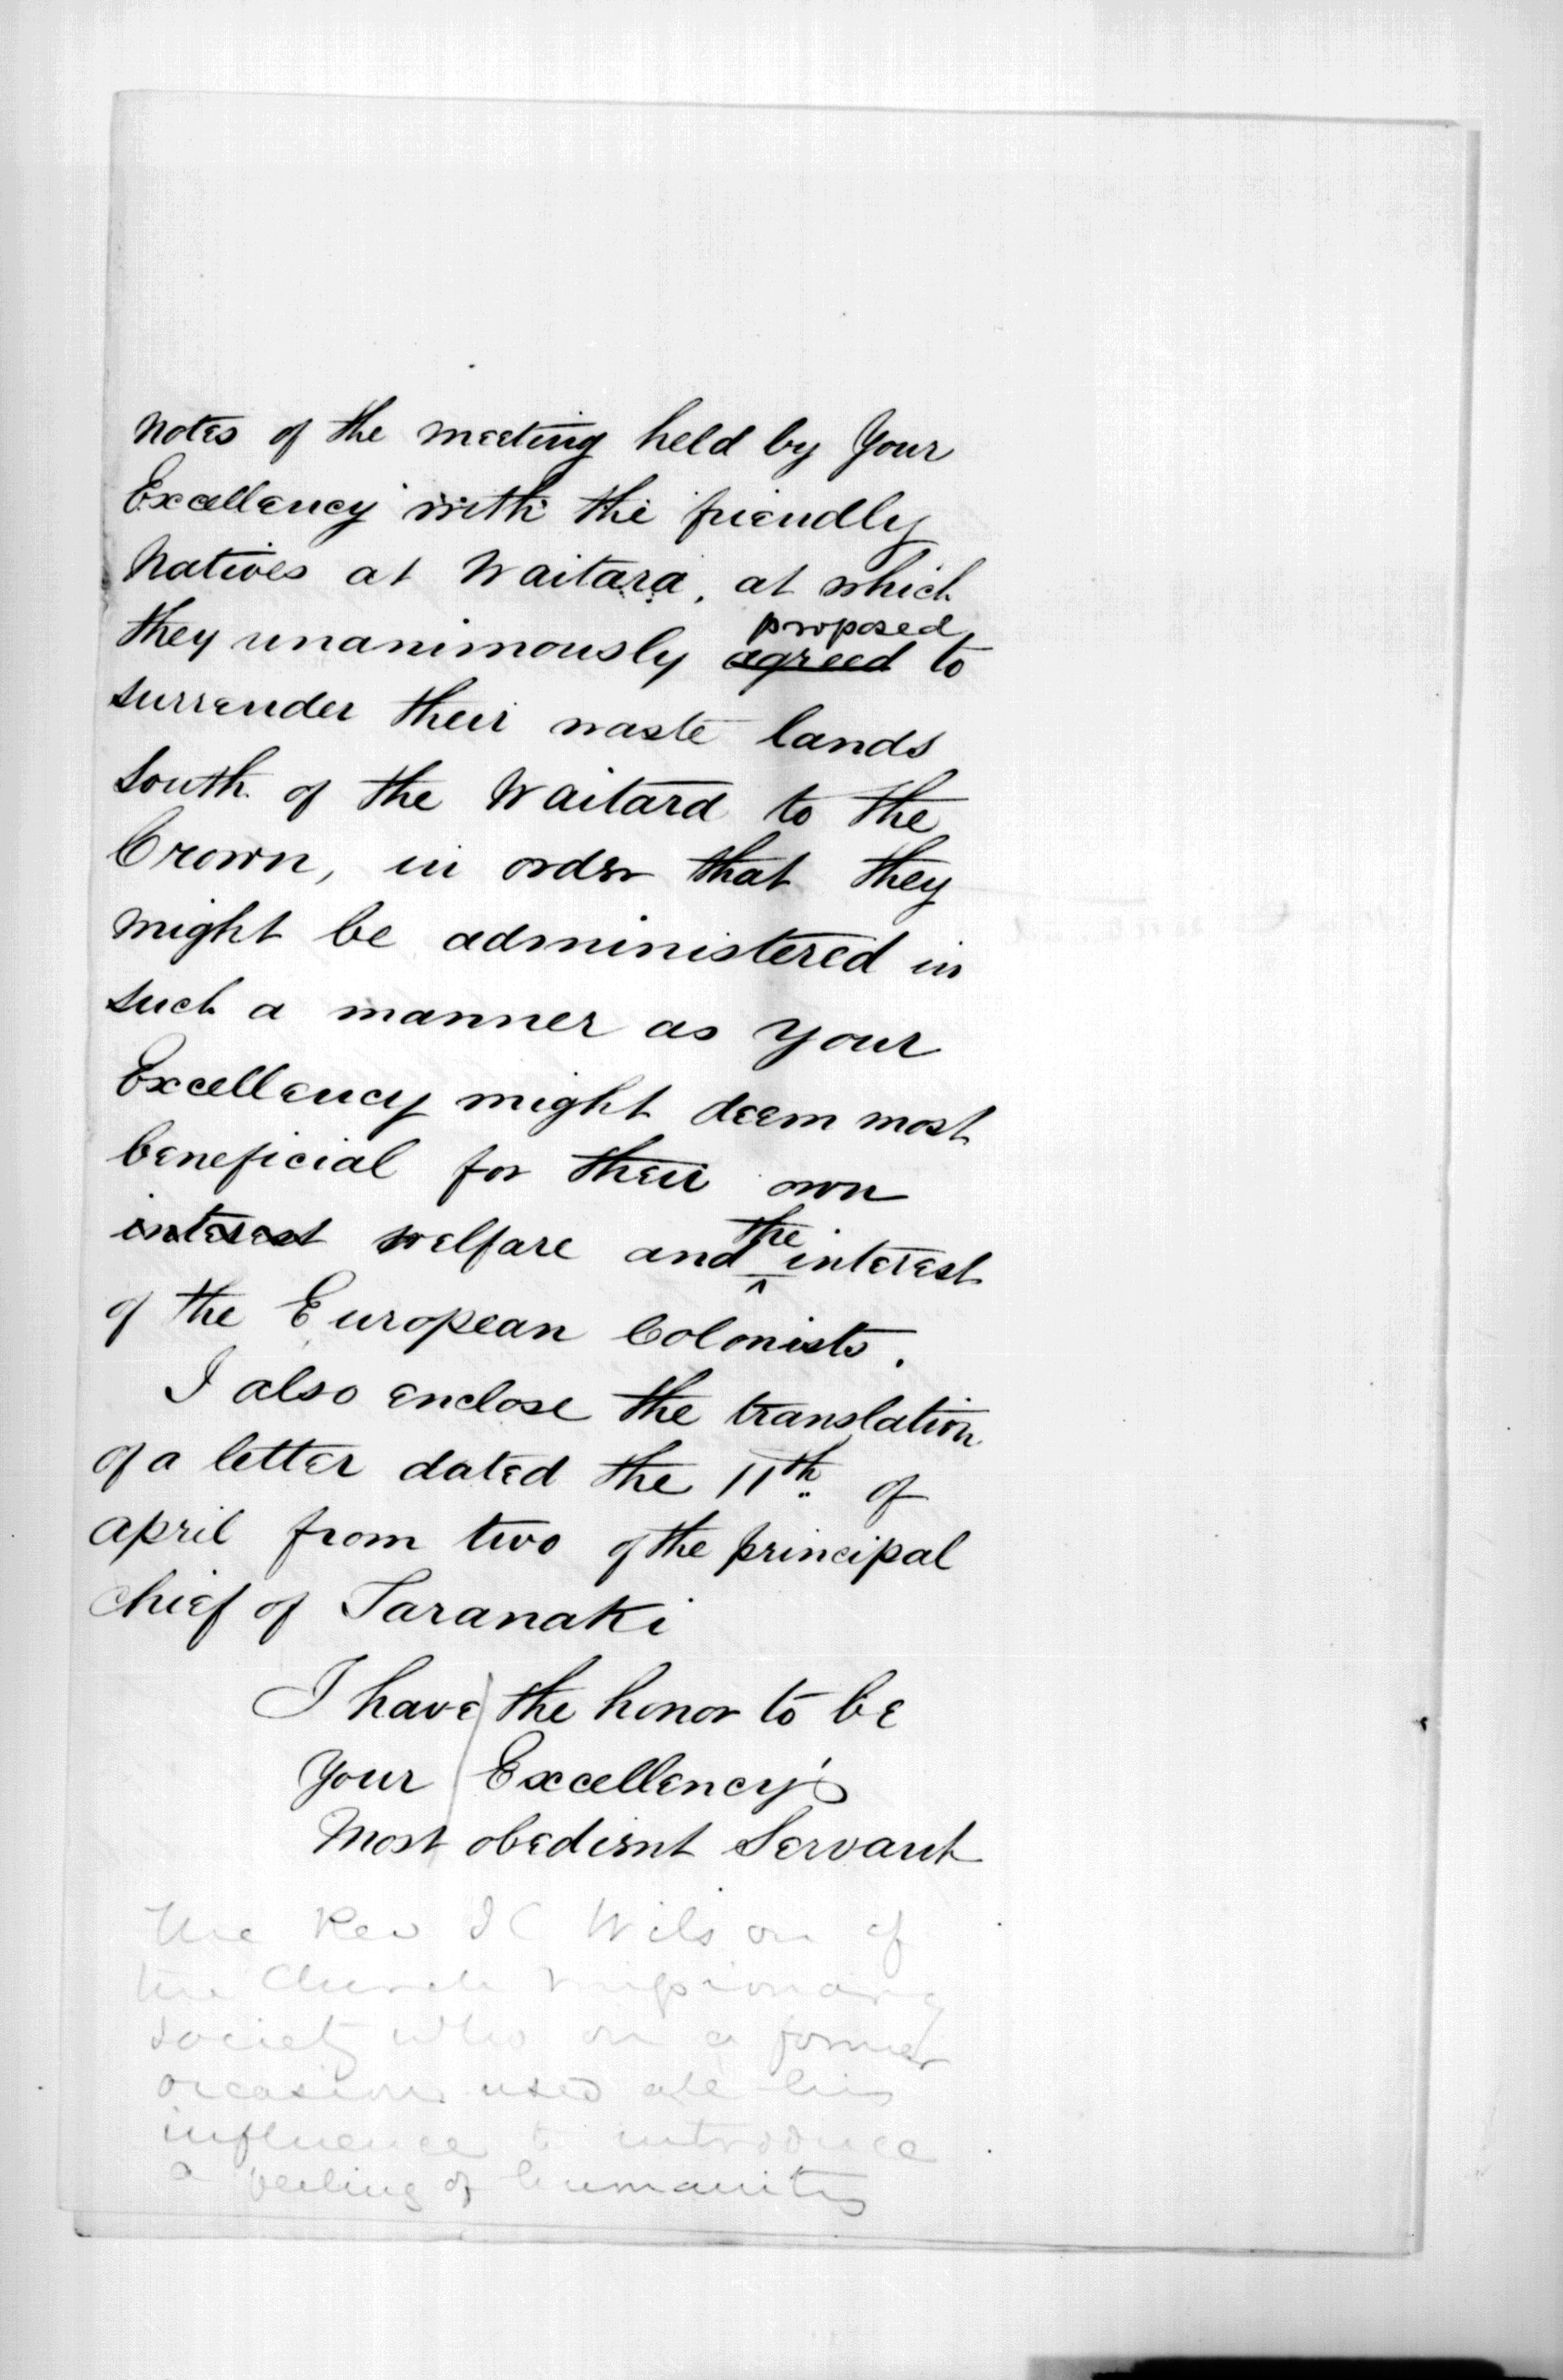 notes of the meeting held by Your
Excellency with the friendly
Natives at Waitara, at which
they unanimously agreed proposed to
surrender their waste lands
South of the Waitara to the
Crown, in order that they
might be administered in
such a manner as Your
Excellency might deem most
beneficial for their own
interest welfare and the interest
of the European Colonists.
I also enclose the translation
of a letter dated the 11th of
april from two of the principal
chief of Taranaki
I have the honor to be
Your Excellency's
Most obedient Servant
The Rev J C Wilson of
the Church Missionary
Society who on a former
occasion used all his
influence to introduce
a feeling of humanity